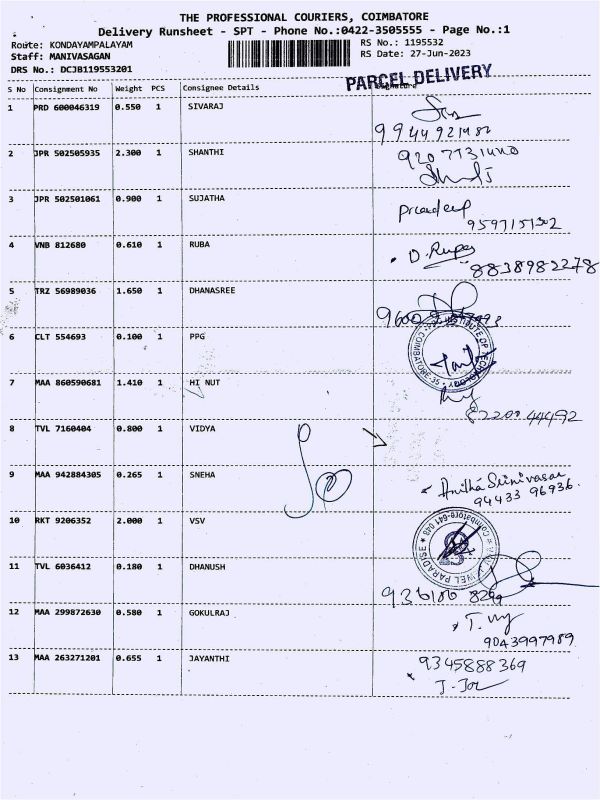 THE PROFESSIONAL COURIERS, COIMBATORE
Delivery Runsheet - SPT - Phone No.:0422-3505555 - Page No.:1
Route: KONDAYAMPALAYAM
RS No.: 1195532
Staff: MANIVASAGAN
RS Date: 27-Jun-2023
DRS No.: DCJB119553201
PARCEL DELIVERY
S No Consignment No Weight PCS Consignee Details Signature
1 PRD 600046319 0.550 1 SIVARAJ
2 JPR 502505935 2.300 1 SHANTHI
3 JPR 502501061 0.900 1 SUJATHA
Pradeep
9597151302
4 VNB 812680 0.610 1 RUBA
D. Rupa
8838982278
5 TRZ 56989036 1.650 1 DHANASREE
6 CLT 554693 0.100 1 PPG
7 MAA 860590681 1.410 1 HI NUT
8 TVL 7160404 0.800 1 VIDYA
9 MAA 942884305 0.265 1 SNEHA
Anitha Srinivasan
94433 96936.
10 RKT 9206352 2.000 1 VSV
11 TVL 6036412 0.180 1 DHANUSH
12 MAA 299872630 0.580 1 GOKULRAJ
9043997989
13 MAA 263271201 0.655 1 JAYANTHI
9345888369